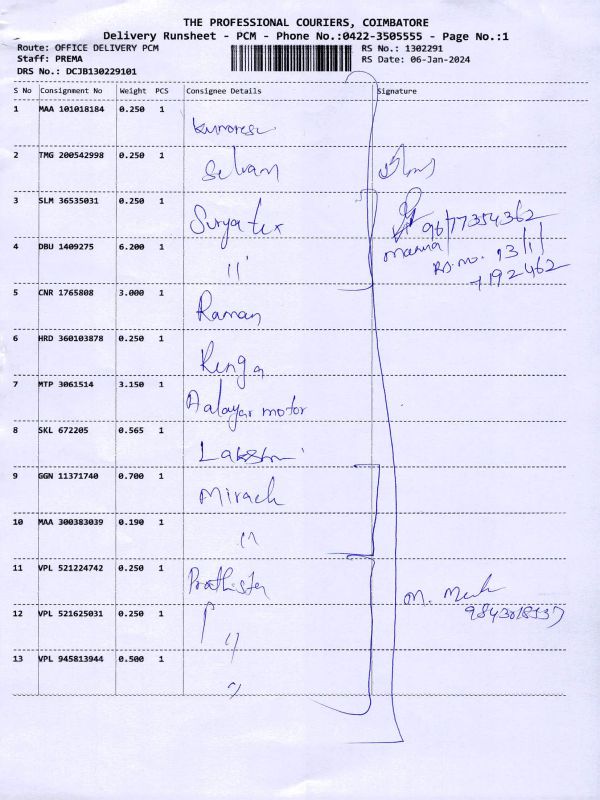 THE PROFESSIONAL COURIERS, COIMBATORE
Delivery Runsheet - PCM - Phone No.:0422-3505555 - Page No.:1
Route: OFFICE DELIVERY PCM RS No.: 1302291
Staff: PREMA RS Date: 06-Jan-2024
DRS No.: DCJB130229101
S No Consignment No Weight PCS Consignee Details Signature
1 MAA 101018184 0.250 1
2 TMG 200542998 0.250 1 Selvam
3 SLM 36535031 0.250 1 Surya tex
9677354362
4 DBU 1409275 6.200 1 11
RS.no. 13/1/
7192462
5 CNR 1765808 3.000 1 Raman
6 HRD 360103878 0.250 1 Renga
7 MTP 3061514 3.150 1 Aalayar motor
8 SKL 672205 0.565 1 Lakshmi
9 GGN 11371740 0.700 1 Mirach
10 MAA 300383039 0.190 1 11
11 VPL 521224742 0.250 1
M.
12 VPL 521625031 0.250 1 11
13 VPL 945813944 0.500 1 "